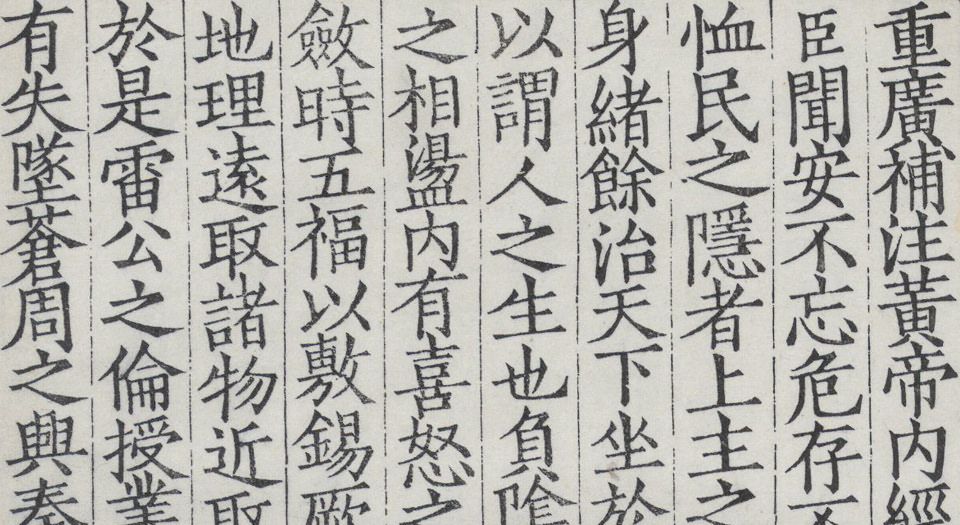 重廣補注黃帝內經
臣聞安不忘危存不
恤民之隱者上主之
身緒餘治天下坐於
以謂人之生也負陰
之相盪內有喜怒之
斂時五福以敷錫厥
地理遠取諸物近取
於是雷公之倫授業
有失墜蒼周之興秦